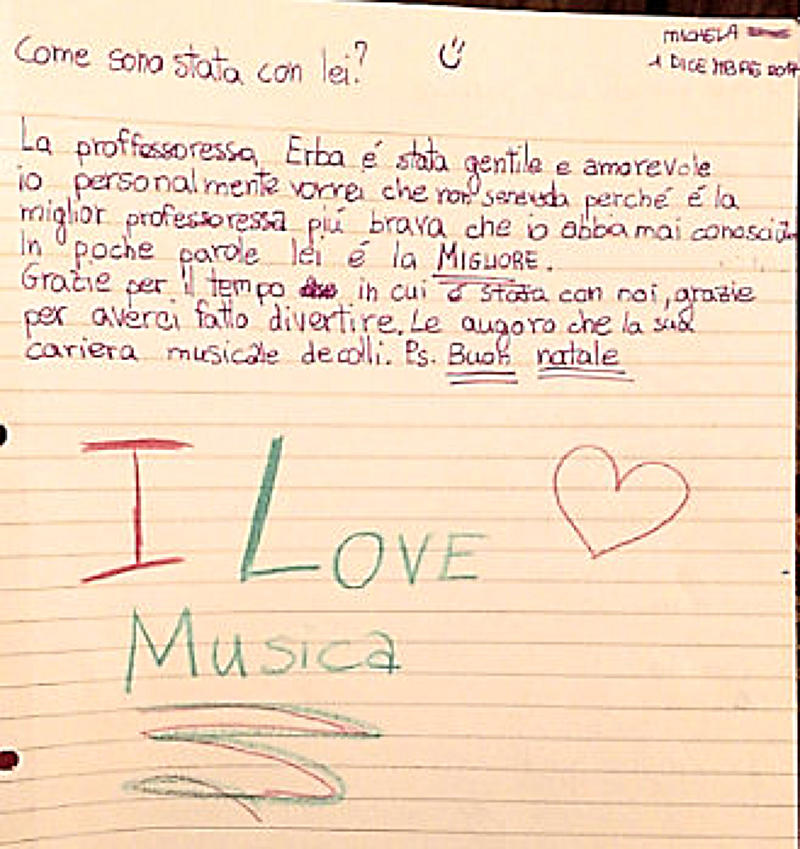 MICHELA
1 DICEMBRE 2017
Come sono stata con lei?
La proffessoressa Erba é stata gentile e amorevole
io personalmente vorrei che non se ne vada perché é la
miglior professoressa piú brava che io abbia mai conosciuto
In poche parole lei é la MIGLIORE.
Grazie per il tempo in cui é stata con noi, grazie
per averci fatto divertire. Le auguro che la sua
cariera musicale decolli. Ps. Buon natale
I LOVE
Musica